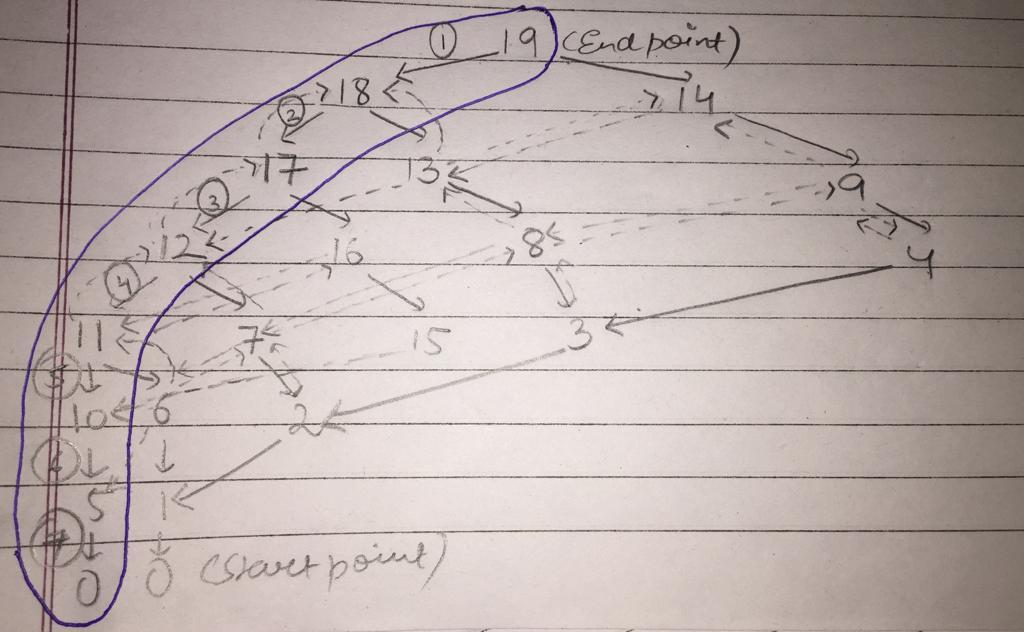 ① 19 (End point)
18 14
②
17 13 9
③
12 16 8 4
④
11 7 15 3
⑤
10 6 2
5 1
0 0 (Start point)